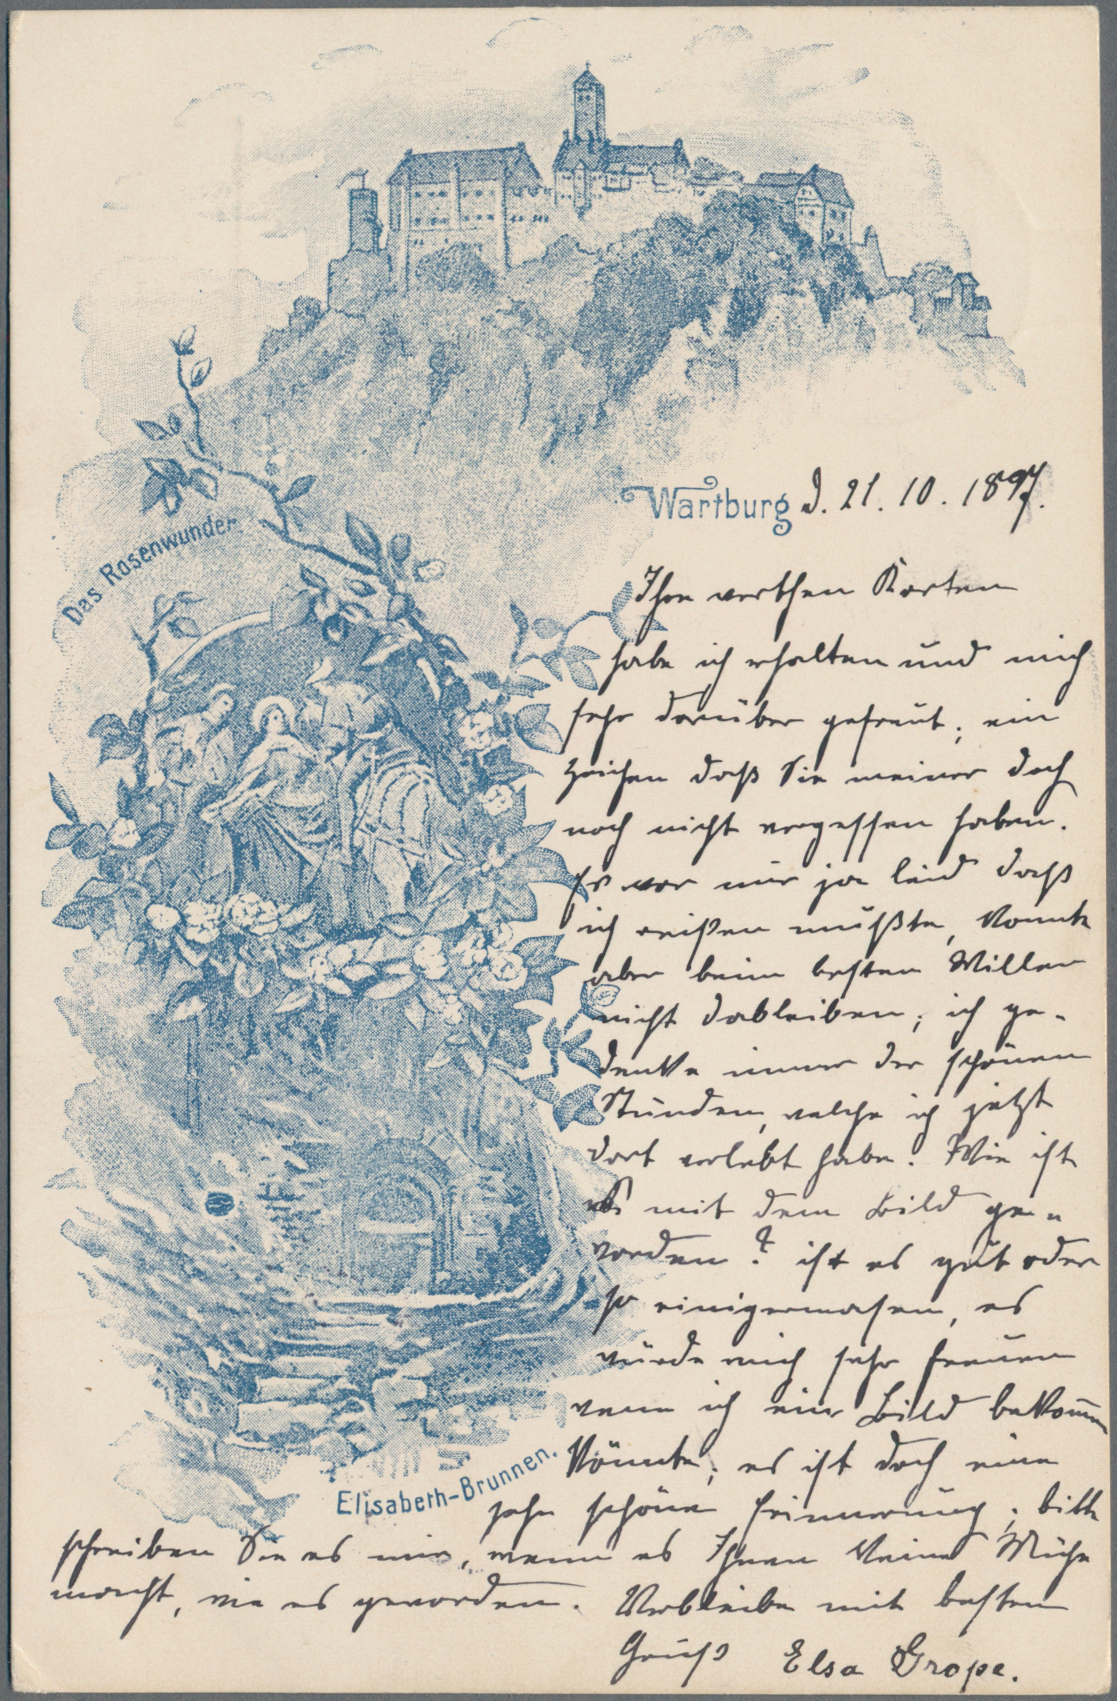 Wartburg d. 21. 10. 1897.
Das Rosenwunder.
Ihre werthen Karten
habe ich erhalten und mich
sehr darüber gefreut; ein
zeichen daß Sie meiner doch
noch nicht vergessen haben.
Es war mir ja leid daß
ich reißen mußte, konnte
aber beim besten Willen
nicht dableiben; ich ge-
denke immer der schönen
Stunden, welche ich jetzt
dort verlebt habe. Wie ist
es mit dem Bild ge-
worden? ist es gut oder
so einigermasen, es
würde mich sehr freuen
wenn ich ein Bild bekomen
könnte; es ist doch eine
Elisabeth-Brunnen.
sehr schöne Erinnerung; bitte
schreiben Sie es mir, wenn es Ihnen keine Mühe
macht, wie es geworden. Verbleibe mit besten
Gruß Elsa Grope.